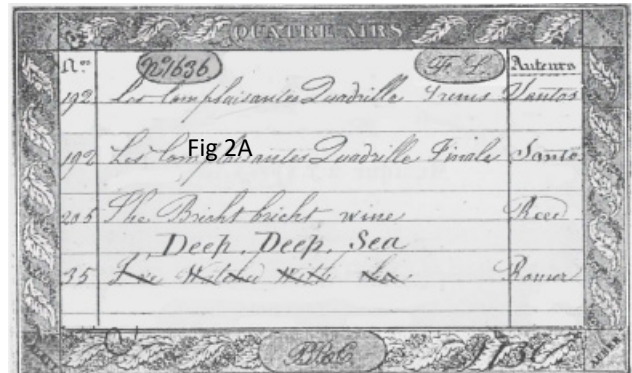 QUATRE AIRS
Nos No 1636 F. L. Auteurs
192 Les Complaisantes Quadrille Trenis Santos
Fig 2A
192 Les Complaisantes Quadrille Finale Santos
205 The Bright bright wine Reed
Deep, Deep, Sea
35 I've With Romer